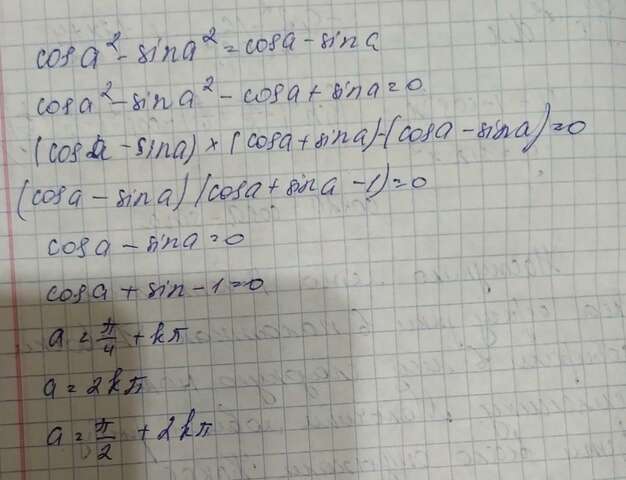 cosa² - sina² = cosa - sina
cosa² - sina² - cosa + sina = 0
(cosa - sina) × (cosa + sina) - (cosa - sina) = 0
(cosa - sina) (cosa + sina - 1) = 0
cosa - sina = 0
cosa + sin - 1 = 0
a = π/4 + kπ
a = 2kπ
a = π/2 + 2kπ